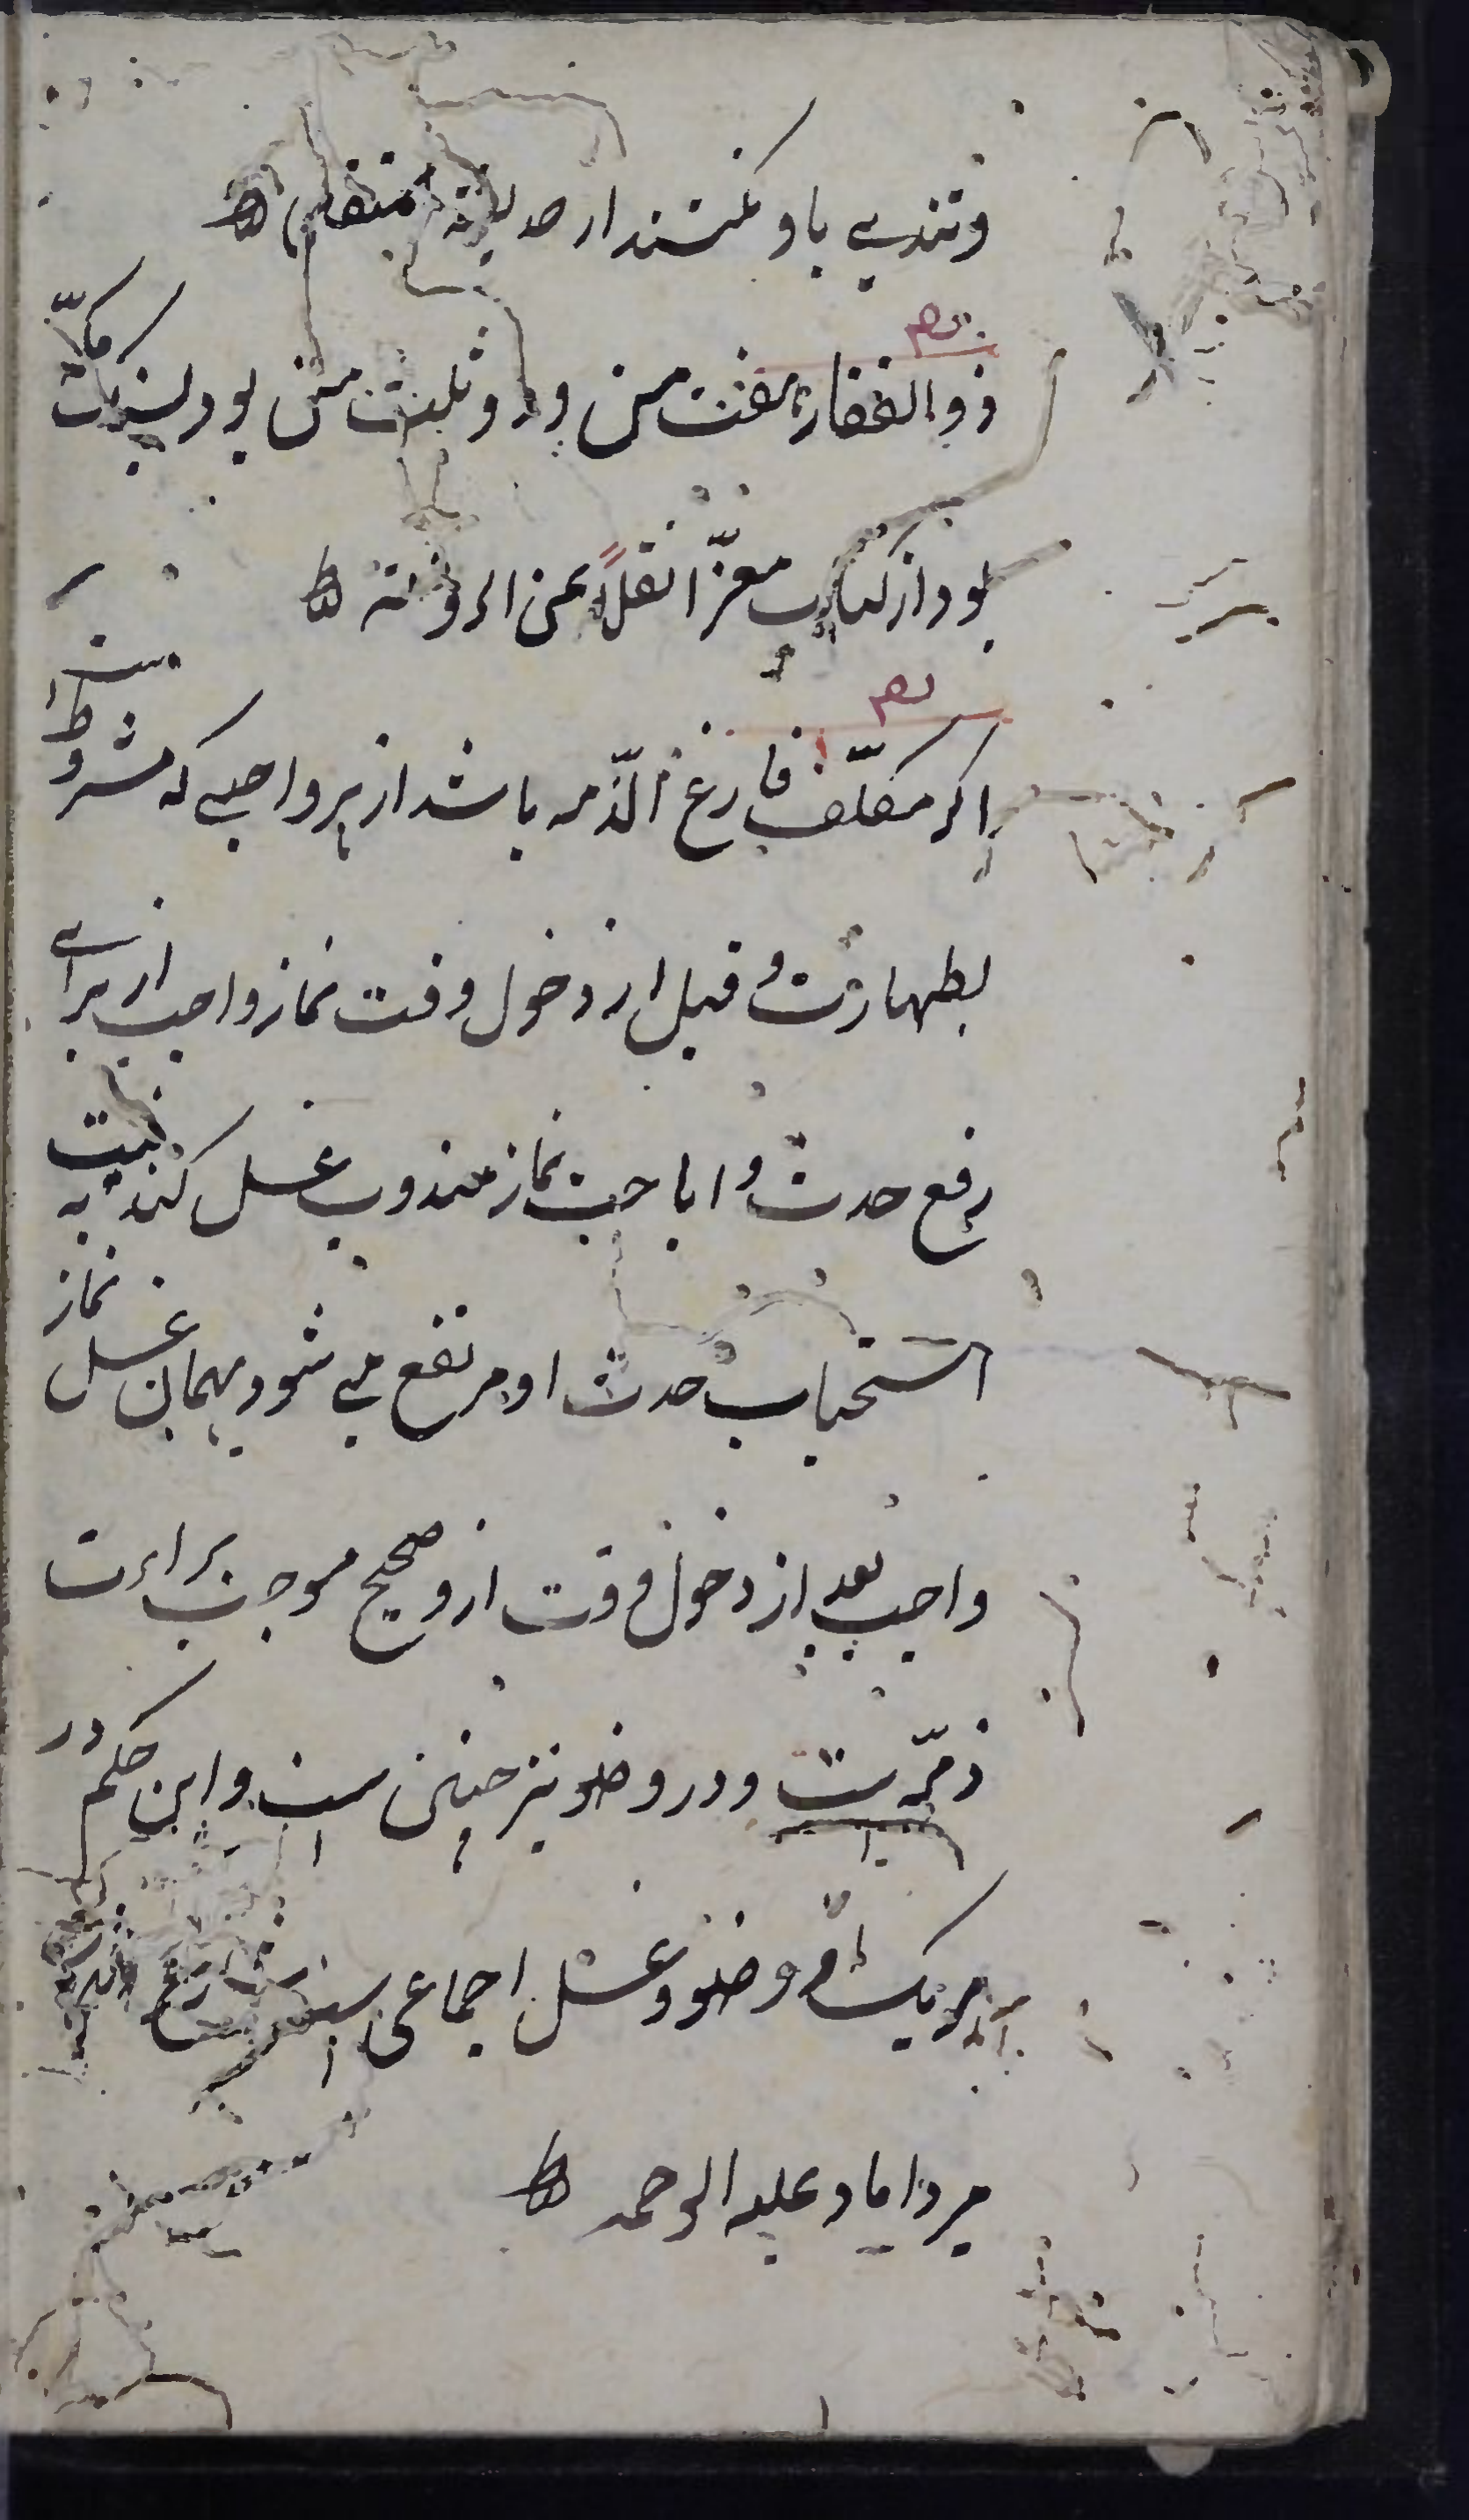 وتندیی باو نکنند از حدیقه المتقین
ذو الفقار هفت من و دو ثلث من بود بسنگ مکّه
بود از کتاب معزّا نقلاً عن الروضه
اگر مکلّف فارغ الذّمه باشد از هر واجبی که مشروط است
بطهارت و قبل از دخول وقت نماز واجب از برای
رفع حدث و اباحت نماز مندوب غسل کند به نیت
استحباب حدث او مرتفع می شود و بهمان غسل نماز
واجب بعد از دخول وقت ازو صحیح موجب براءت
ذمّه است و در وضو نیز چنین است و این حکم در
هر یک از وضو و غسل اجماعی است شارع
میرداماد علیه الرحمه